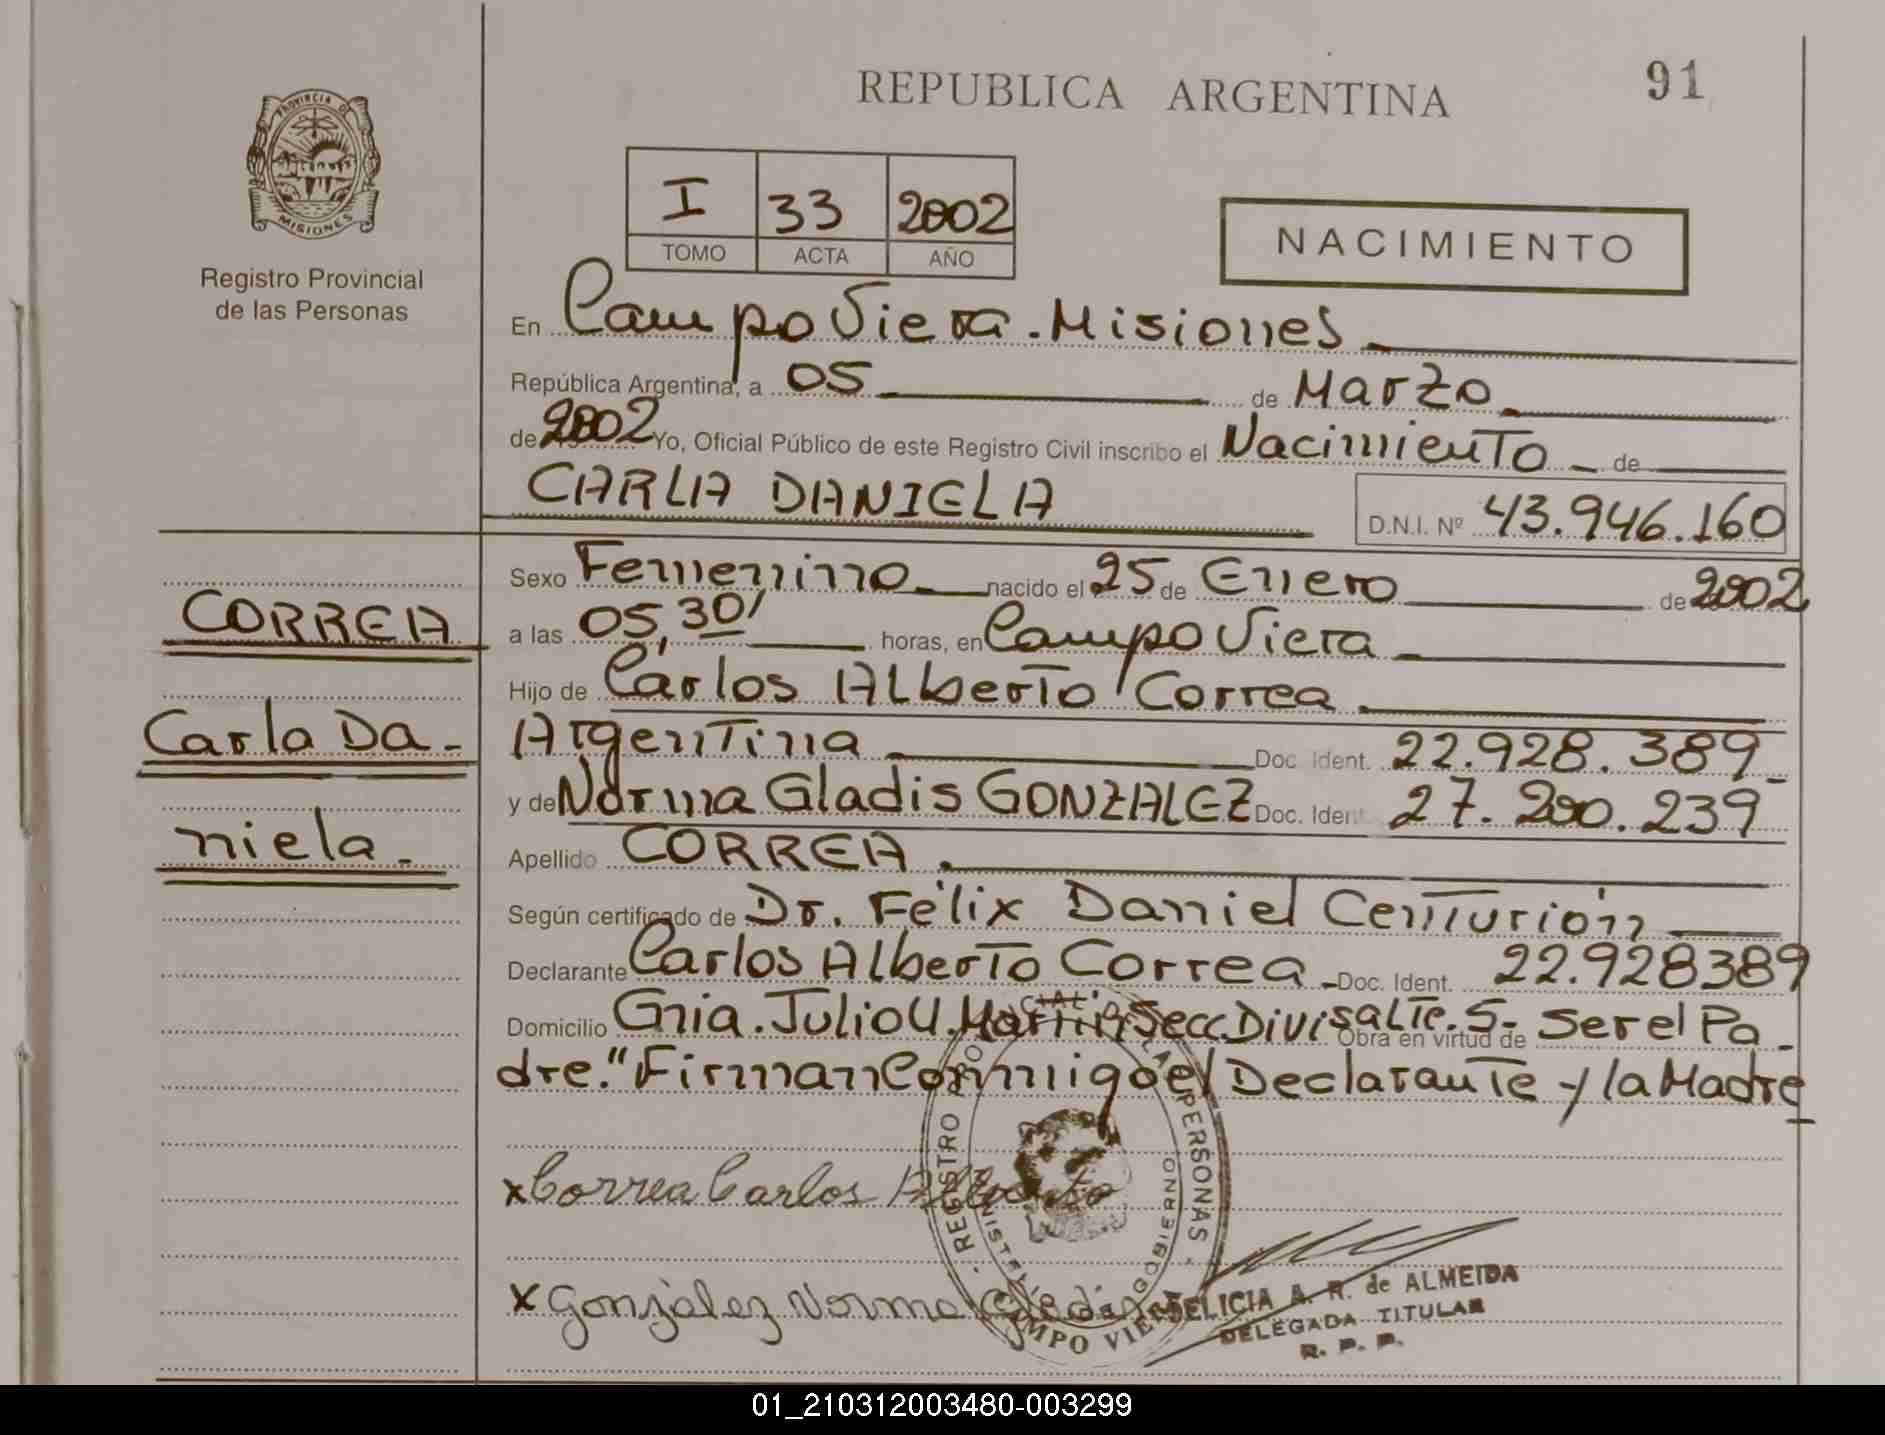 REPUBLICA ARGENTINA
91
PROVINCIA DE MISIONES
Registro Provincial
de las Personas
I 33 2002
TOMO ACTA AÑO
NACIMIENTO
En Campo Viera - Misiones
República Argentina, a 05 de Marzo
de 2002 Yo, Oficial Público de este Registro Civil inscribo el Nacimiento de
CARLA DANIELA
D.N.I. Nº 43.946.160
Sexo Femenino nacido el 25 de Enero de 2002
CORREA
a las 05,30' horas, en Campo Viera
Hijo de Carlos Alberto Correa
Carla Da-
Argentina Doc. Ident. 22.928.389-
y de Norma Gladis GONZALEZ Doc. Ident. 27.200.239
niela.
Apellido CORREA.
Según certificado de Dr. Félix Daniel Centurión
Declarante Carlos Alberto Correa - Doc. Ident. 22.928389
Domicilio Gnia. Julio U. Martin Secc. Divisa Lte. 5- Obra en virtud de Ser el Pa-
dre." Firman Conmigo el Declarante y la Madre
x Correa Carlos Alberto
x Gonzalez Norma Gladis
REGISTRO PERSONAS
GOBIERNO
CAMPO VIERA
DELICIA A. R. de ALMEIDA
DELEGADA TITULAR
R. P. P.
01_210312003480-003299